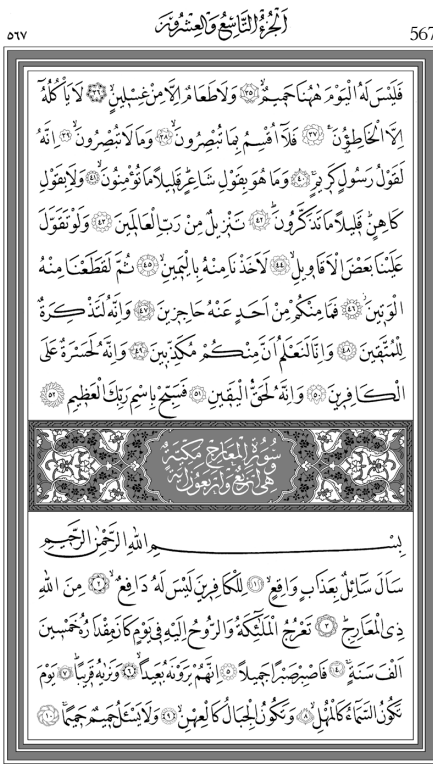 ٥٦٧ اَلْجُزْءُ التَّاسِعُ وَالْعِشْرُونَ 567
فَلَيْسَ لَهُ الْيَوْمَ هٰهُنَا حَمٖيمٌۙ ﴿٣٥﴾ وَلَا طَعَامٌ اِلَّا مِنْ غِسْلٖينٍۙ ﴿٣٦﴾ لَا يَأْكُلُهُٓ
اِلَّا الْخَاطِؤُ۫نَ۟ ﴿٣٧﴾ فَلَٓا اُقْسِمُ بِمَا تُبْصِرُونَۙ ﴿٣٨﴾ وَمَا لَا تُبْصِرُونَۙ ﴿٣٩﴾ اِنَّهُ
لَقَوْلُ رَسُولٍ كَرٖيمٍۚ ﴿٤٠﴾ وَمَا هُوَ بِقَوْلِ شَاعِرٍؕ قَلٖيلًا مَا تُؤْمِنُونَۙ ﴿٤١﴾ وَلَا بِقَوْلِ
كَاهِنٍؕ قَلٖيلًا مَا تَذَكَّرُونَؕ ﴿٤٢﴾ تَنْزٖيلٌ مِنْ رَبِّ الْعَالَمٖينَ ﴿٤٣﴾ وَلَوْ تَقَوَّلَ
عَلَيْنَا بَعْضَ الْاَقَاوٖيلِۙ ﴿٤٤﴾ لَاَخَذْنَا مِنْهُ بِالْيَمٖينِۙ ﴿٤٥﴾ ثُمَّ لَقَطَعْنَا مِنْهُ
الْوَتٖينَؗ ﴿٤٦﴾ فَمَا مِنْكُمْ مِنْ اَحَدٍ عَنْهُ حَاجِزٖينَ ﴿٤٧﴾ وَاِنَّهُ لَتَذْكِرَةٌ
لِلْمُتَّقٖينَ ﴿٤٨﴾ وَاِنَّا لَنَعْلَمُ اَنَّ مِنْكُمْ مُكَذِّبٖينَ ﴿٤٩﴾ وَاِنَّهُ لَحَسْرَةٌ عَلَى
الْكَافِرٖينَ ﴿٥٠﴾ وَاِنَّهُ لَحَقُّ الْيَقٖينِ ﴿٥١﴾ فَسَبِّحْ بِاسْمِ رَبِّكَ الْعَظٖيمِ ﴿٥٢﴾
سُورَةُ الْمَعَارِجِ مَكِّيَّةٌ
وَهِيَ اَرْبَعٌ وَاَرْبَعُونَ اٰيَةً
بِسْمِ اللّٰهِ الرَّحْمٰنِ الرَّحٖيمِ
سَاَلَ سَٓائِلٌ بِعَذَابٍ وَاقِعٍۙ ﴿١﴾ لِلْكَافِرٖينَ لَيْسَ لَهُ دَافِعٌۙ ﴿٢﴾ مِنَ اللّٰهِ
ذِي الْمَعَارِجِؕ ﴿٣﴾ تَعْرُجُ الْمَلٰٓئِكَةُ وَالرُّوحُ اِلَيْهِ فٖي يَوْمٍ كَانَ مِقْدَارُهُ خَمْسٖينَ
اَلْفَ سَنَةٍۚ ﴿٤﴾ فَاصْبِرْ صَبْرًا جَمٖيلًا ﴿٥﴾ اِنَّهُمْ يَرَوْنَهُ بَعٖيدًاۙ ﴿٦﴾ وَنَرٰيهُ قَرٖيبًاؕ ﴿٧﴾ يَوْمَ
تَكُونُ السَّمَٓاءُ كَالْمُهْلِۙ ﴿٨﴾ وَتَكُونُ الْجِبَالُ كَالْعِهْنِۙ ﴿٩﴾ وَلَا يَسْـَٔلُ حَمٖيمٌ حَمٖيمًاۚ ﴿١٠﴾